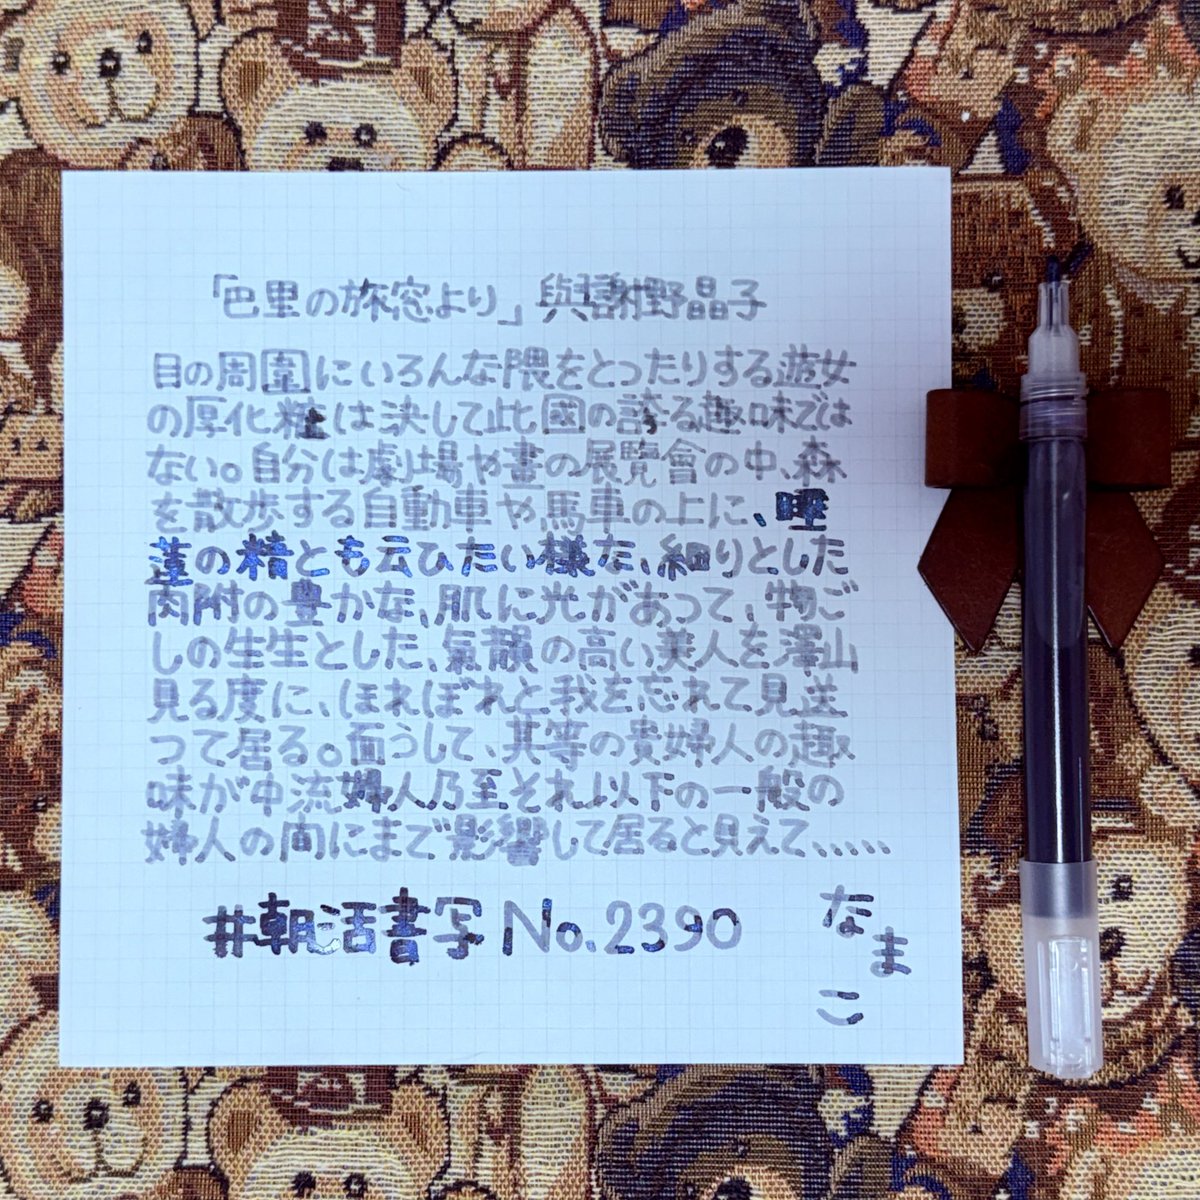 「巴里の旅窓より」與謝野晶子
目の周圍にいろんな隈をとったりする遊女
の厚化粧は決して此國の誇る趣味では
ない。自分は劇場や畫の展覽會の中、森
を散歩する自動車や馬車の上に、睡
蓮の精とも云ひたい樣な、細りとした
肉附の豊かな、肌に光があって、物ご
しの生生とした、氣韻の高い美人を澤山
見る度に、ほれぼれと我を忘れて見送
つて居る。面うして、其等の貴婦人の趣
味が中流婦人乃至それ以下の一般の
婦人の間にまで影響して居ると見えて、、、、、
#朝活書写 No.2390
なまこ